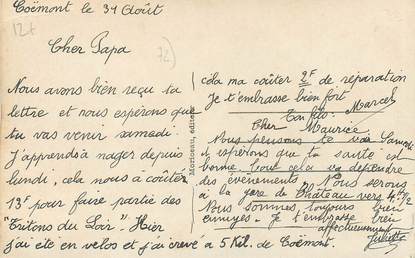 Coëmont le 31 Août
12f
72
Cher Papa
Nous avons bien reçu ta
lettre et nous espérons que
tu vas venir samedi.
J'apprends à nager depuis
lundi, cela nous à coûter
13f pour faire partie des
"Tritons du Loir". Hier
j'ai été en velos et j'ai crevé a 5 Kil. de Coëmont.
Morineau, éditeur
céla ma coûter 2F de reparation
Je t'embrasse bien fort
Ton fils. Marcel
Cher Maurice.
Nous pensons te voir Samedi
et espérons que ta santé est
bonne. Tout cela va dépendre
des évènements. Nous serons
à la gare de Château vers 4h 1/2
Nous sommes toujours bien
ennuyés. Je t'embrasse bien
affectueusement
Juliette